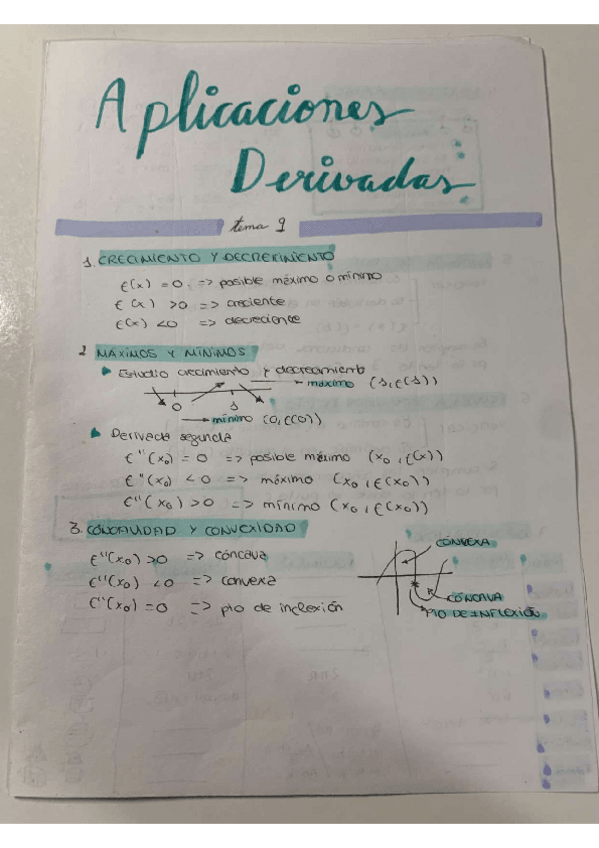 Aplicaciones
Derivadas
tema 9
1. CRECIMIENTO Y DECRECIMIENTO
f(x) = 0 => posible máximo o mínimo
f(x) > 0 => creciente
f(x) < 0 => decreciente
2 MÁXIMOS Y MÍNIMOS
Estudio crecimiento y decrecimiento
máximo (1, f(1))
0 1
mínimo (0, f(0))
Derivada segunda
f''(x₀) = 0 => posible máximo (x₀, f(x))
f''(x₀) < 0 => máximo (x₀, f(x₀))
f''(x₀) > 0 => mínimo (x₀, f(x₀))
3. CONCAVIDAD Y CONVEXIDAD
f''(x₀) > 0 => cóncava
f''(x₀) < 0 => convexa
f''(x₀) = 0 => pto de inflexión
CÓNVEXA
CÓNCAVA
PTO DE INFLEXIÓN